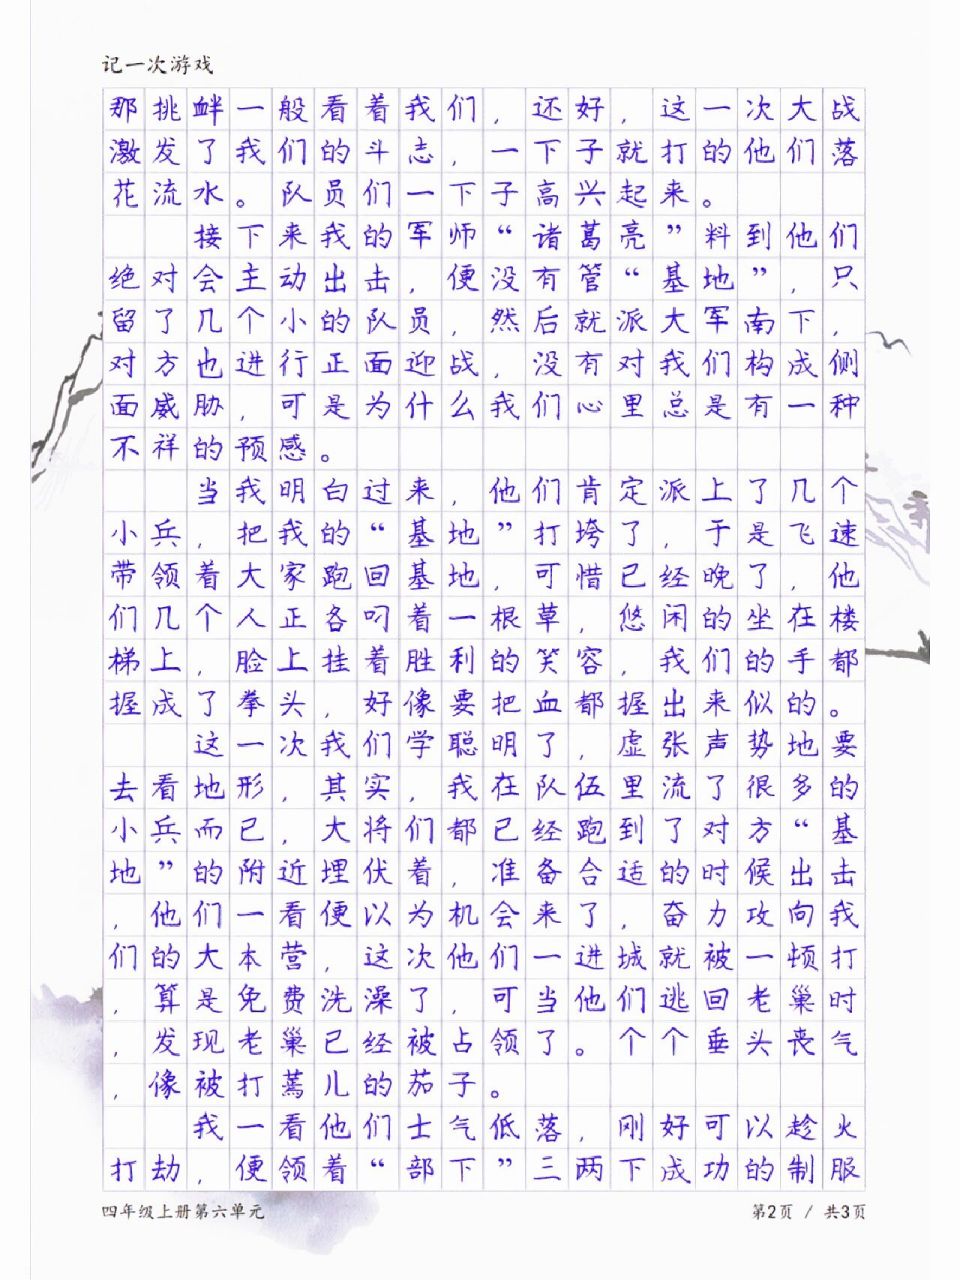 记一次游戏
那挑衅一般看着我们，还好，这一次大战
激发了我们的斗志，一下子就打的他们落
花流水。队员们一下子高兴起来。
接下来我的军师“诸葛亮”料到他们
绝对会主动出击，便没有管“基地”，只
留了几个小的队员，然后就派大军南下，
对方也进行正面迎战，没有对我们构成侧
面威胁，可是为什么我们心里总是有一种
不祥的预感。
当我明白过来，他们肯定派上了几个
小兵，把我的“基地”打垮了，于是飞速
带领着大家跑回基地，可惜已经晚了，他
们几个人正各叼着一根草，悠闲的坐在楼
梯上，脸上挂着胜利的笑容，我们的手都
握成了拳头，好像要把血都握出来似的。
这一次我们学聪明了，虚张声势地要
去看地形，其实，我在队伍里流了很多的
小兵而已，大将们都已经跑到了对方“基
地”的附近埋伏着，准备合适的时候出击
，他们一看便以为机会来了，奋力攻向我
们的大本营，这次他们一进城就被一顿打
，算是免费洗澡了，可当他们逃回老巢时
，发现老巢已经被占领了。个个垂头丧气
，像被打蔫儿的茄子。
我一看他们士气低落，刚好可以趁火
打劫，便领着“部下”三两下成功的制服
四年级上册第六单元
第2页 / 共3页